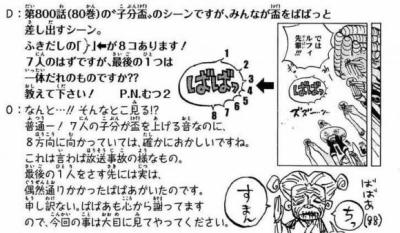 D:第800話(80巻)の"子分盃"のシーンですが、みんなが盃をばばっと
差し出すシーン。
ふきだしの「}」←が8コあります!
7人のはずですが、最後の1つは
一体だれのものですか??
教えて下さい! P.N.むつ2
1
2
3
4
5
6
7
8
ばばっ
O:なんと…!!そんなとこ見る!?
普通ー!7人の子分が盃を上げる音なのに、
8方向に向かっていては、確かにおかしいですね。
これは言わば放送事故の様なもの。
最後の1人をさす先には実は、
偶然通りかかったばばあがいたのです。
申し訳ない。ばばあも心から謝ってます
ので、今回の事は大目に見てやってください。
先輩では
ばばっ
ズズーン
すまん
ちっ
ばばあ
(98)